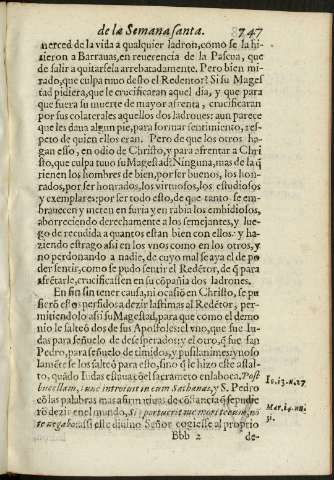 de la Semana santa. 747
merced de la vida a qualquier ladron, como se la hi-
zieron a Barrauas, en reuerencia de la Pascua, que
de salir a quitarsela arrebatadamente. Pero bien mi-
rado, que culpa tuuo desto el Redentor? Si su Mages
tad pidiera, que le crucificaran aquel dia, y que para
que fuera su muerte de mayor afrenta, crucificaran
por sus colaterales aquellos dos ladrones: aun parece
que les daua algun pie, para formar sentimiento, res-
peto de quien ellos eran. Pero de que los otros ha-
gan esso, en odio de Christo, y para afrentar a Chri
sto, que culpa tuuo su Magestad? Ninguna, mas de la q̃
tienen los hombres de bien, por ser buenos, los hon-
rados, por ser honrados, los virtuosos, los estudiosos
y exemplares: por ser todo esto, de que tanto se em-
brauecen y meten en furia y en rabia los embidiosos,
aborreciendo derechamente a los semejantes, y lue-
go de recudida a quantos estan bien con ellos: y ha-
ziendo estrago assi en los vnos como en los otros, y
no perdonando a nadie, de cuyo mal se aya el de po
der sentir, como se pudo sentir el Redẽtor, de q̃ para
afrẽtarle, crucificassen en su cõpañia dos ladrones.
En fin sin tener causa, ni ocasiõ en Christo, se pu
sierõ essos perfidos a dezir lastimas al Redẽtor, per-
mitiendolo assi su Magestad, para que como el demo
nio le salteó dos de sus Apostoles: el vno, que fue Iu-
das para señuelo de desesperados: y el otro, q̃ fue san
Pedro, para señuelo de timidos, y pusilanimes: y no so
lamẽte se los salteó para esto, sino q̃ le hizo este assal-
to, quãdo Iudas estaua cõ el sacramẽto en la boca. Post
buccellam, tunc introiuit in eum Sathanas, y S. Pedro
cõ las palabras mas afirmatiuas de cõstancia q̃ se pudie
rõ dezir en el mundo, Si oportuerit me mori tecum, nõ
te negabo: assi este diuino Señor cogiesse al proprio
Bbb 2 de-
Io. 13. n. 27
Mar. 14. nu.
31.